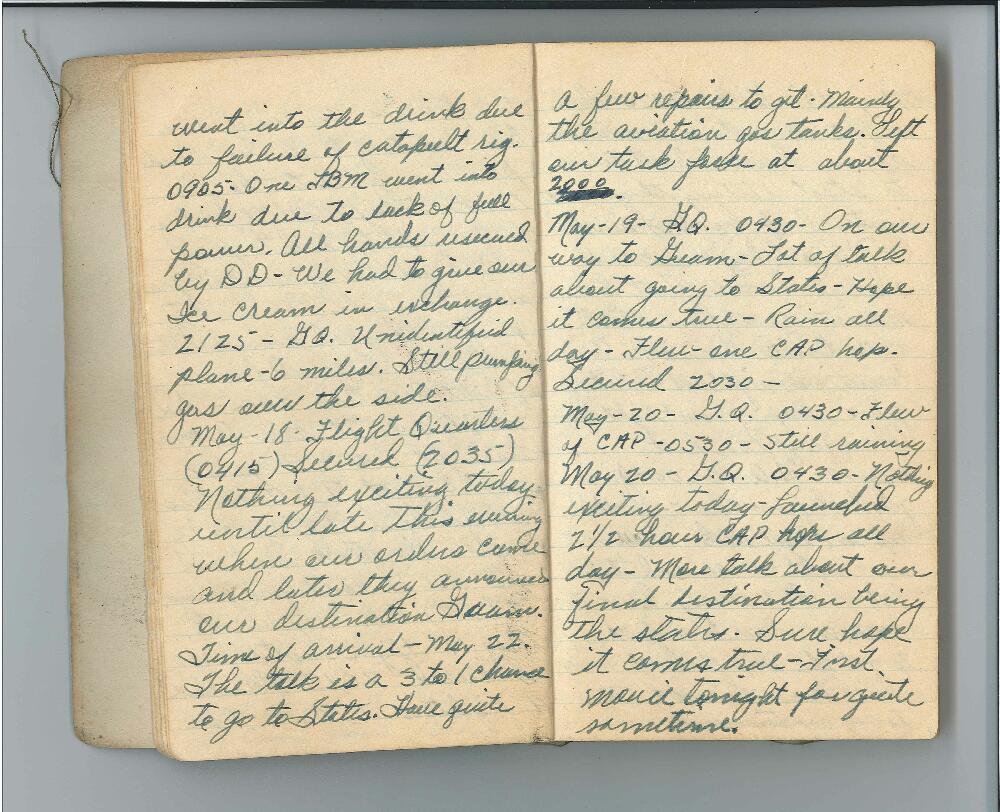 went into the drink due
to failure of catapult rig.
0905- One TBM went into
drink due to lack of full
power. All hands rescued
by DD- We had to give our
Ice cream in exchange.
2125 - GQ. Unidentified
plane-6 miles. Still pumping
gas over the side.
May-18- Flight Quarters
(0415) Secured (2035)
Nothing exciting today
until late this evening
when our orders came
and later they announced
our destination Guam.
Time of arrival - May 22.
The talk is a 3 to 1 chance
to go to States. Have quite
a few repairs to get. Mainly
the aviation gas tanks. Left
our task force at about
2000.
May-19- G.Q. 0430- On our
way to Guam- Lot of talk
about going to States- Hope
it comes true- Rain all
day- Flew one CAP hop.
Secured 2030 -
May-20- G.Q. 0430- Flew
CAP -0530- Still raining
May 20- G.Q. 0430- Nothing
exciting today- Launched
2 1/2 hour CAP hops all
day- More talk about our
final destination being
the states. Sure hope
it comes true- First
movie tonight for quite
sometime.